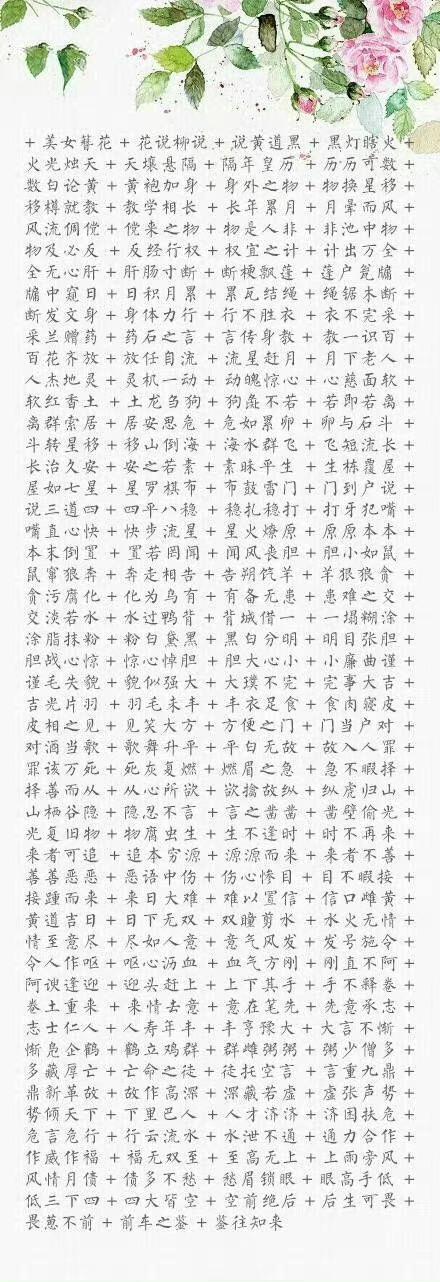 + 美女簪花 + 花说柳说 + 说黄道黑 + 黑灯瞎火 +
火光烛天 + 天壤悬隔 + 隔年皇历 + 历历可数 +
数白论黄 + 黄袍加身 + 身外之物 + 物换星移 +
移樽就教 + 教学相长 + 长年累月 + 月晕而风 +
风流倜傥 + 傥来之物 + 物是人非 + 非池中物 +
物及必反 + 反经行权 + 权宜之计 + 计出万全 +
全无心肝 + 肝肠寸断 + 断梗飘蓬 + 蓬户瓮牖 +
牖中窥日 + 日积月累 + 累瓦结绳 + 绳锯木断 +
断发文身 + 身体力行 + 行不胜衣 + 衣不完采 +
采兰赠药 + 药石之言 + 言传身教 + 教一识百 +
百花齐放 + 放任自流 + 流星赶月 + 月下老人 +
人杰地灵 + 灵机一动 + 动魄惊心 + 心慈面软 +
软红香土 + 土龙刍狗 + 狗彘不若 + 若即若离 +
离群索居 + 居安思危 + 危如累卵 + 卵与石斗 +
斗转星移 + 移山倒海 + 海水群飞 + 飞短流长 +
长治久安 + 安之若素 + 素昧平生 + 生栋覆屋 +
屋如七星 + 星罗棋布 + 布鼓雷门 + 门到户说 +
说三道四 + 四平八稳 + 稳扎稳打 + 打牙犯嘴 +
嘴直心快 + 快步流星 + 星火燎原 + 原原本本 +
本末倒置 + 置若罔闻 + 闻风丧胆 + 胆小如鼠 +
鼠窜狼奔 + 奔走相告 + 告朔饩羊 + 羊狠狼贪 +
贪污腐化 + 化为乌有 + 有备无患 + 患难之交 +
交淡若水 + 水过鸭背 + 背城借一 + 一塌糊涂 +
涂脂抹粉 + 粉白黛黑 + 黑白分明 + 明目张胆 +
胆战心惊 + 惊心悼胆 + 胆大心小 + 小廉曲谨 +
谨毛失貌 + 貌似强大 + 大璞不完 + 完事大吉 +
吉光片羽 + 羽毛未丰 + 丰衣足食 + 食肉寝皮 +
皮相之见 + 见笑大方 + 方便之门 + 门当户对 +
对酒当歌 + 歌舞升平 + 平白无故 + 故入人罪 +
罪该万死 + 死灰复燃 + 燃眉之急 + 急不暇择 +
择善而从 + 从心所欲 + 欲擒故纵 + 纵虎归山 +
山栖谷隐 + 隐忍不言 + 言之凿凿 + 凿壁偷光 +
光复旧物 + 物腐虫生 + 生不逢时 + 时不再来 +
来者可追 + 追本穷源 + 源源而来 + 来者不善 +
善善恶恶 + 恶语中伤 + 伤心惨目 + 目不暇接 +
接踵而来 + 来日大难 + 难以置信 + 信口雌黄 +
黄道吉日 + 日下无双 + 双瞳剪水 + 水火无情 +
情至意尽 + 尽如人意 + 意气风发 + 发号施令 +
令人作呕 + 呕心沥血 + 血气方刚 + 刚直不阿 +
阿谀逢迎 + 迎头赶上 + 上下其手 + 手不释卷 +
卷土重来 + 来情去意 + 意在笔先 + 先意承志 +
志士仁人 + 人寿年丰 + 丰亨豫大 + 大言不惭 +
惭凫企鹤 + 鹤立鸡群 + 群雌粥粥 + 粥少僧多 +
多藏厚亡 + 亡命之徒 + 徒托空言 + 言重九鼎 +
鼎新革故 + 故作高深 + 深藏若虚 + 虚张声势 +
势倾天下 + 下里巴人 + 人才济济 + 济困扶危 +
危言危行 + 行云流水 + 水泄不通 + 通力合作 +
作威作福 + 福无双至 + 至高无上 + 上雨旁风 +
风情月债 + 债多不愁 + 愁眉锁眼 + 眼高手低 +
低三下四 + 四大皆空 + 空前绝后 + 后生可畏 +
畏葸不前 + 前车之鉴 + 鉴往知来